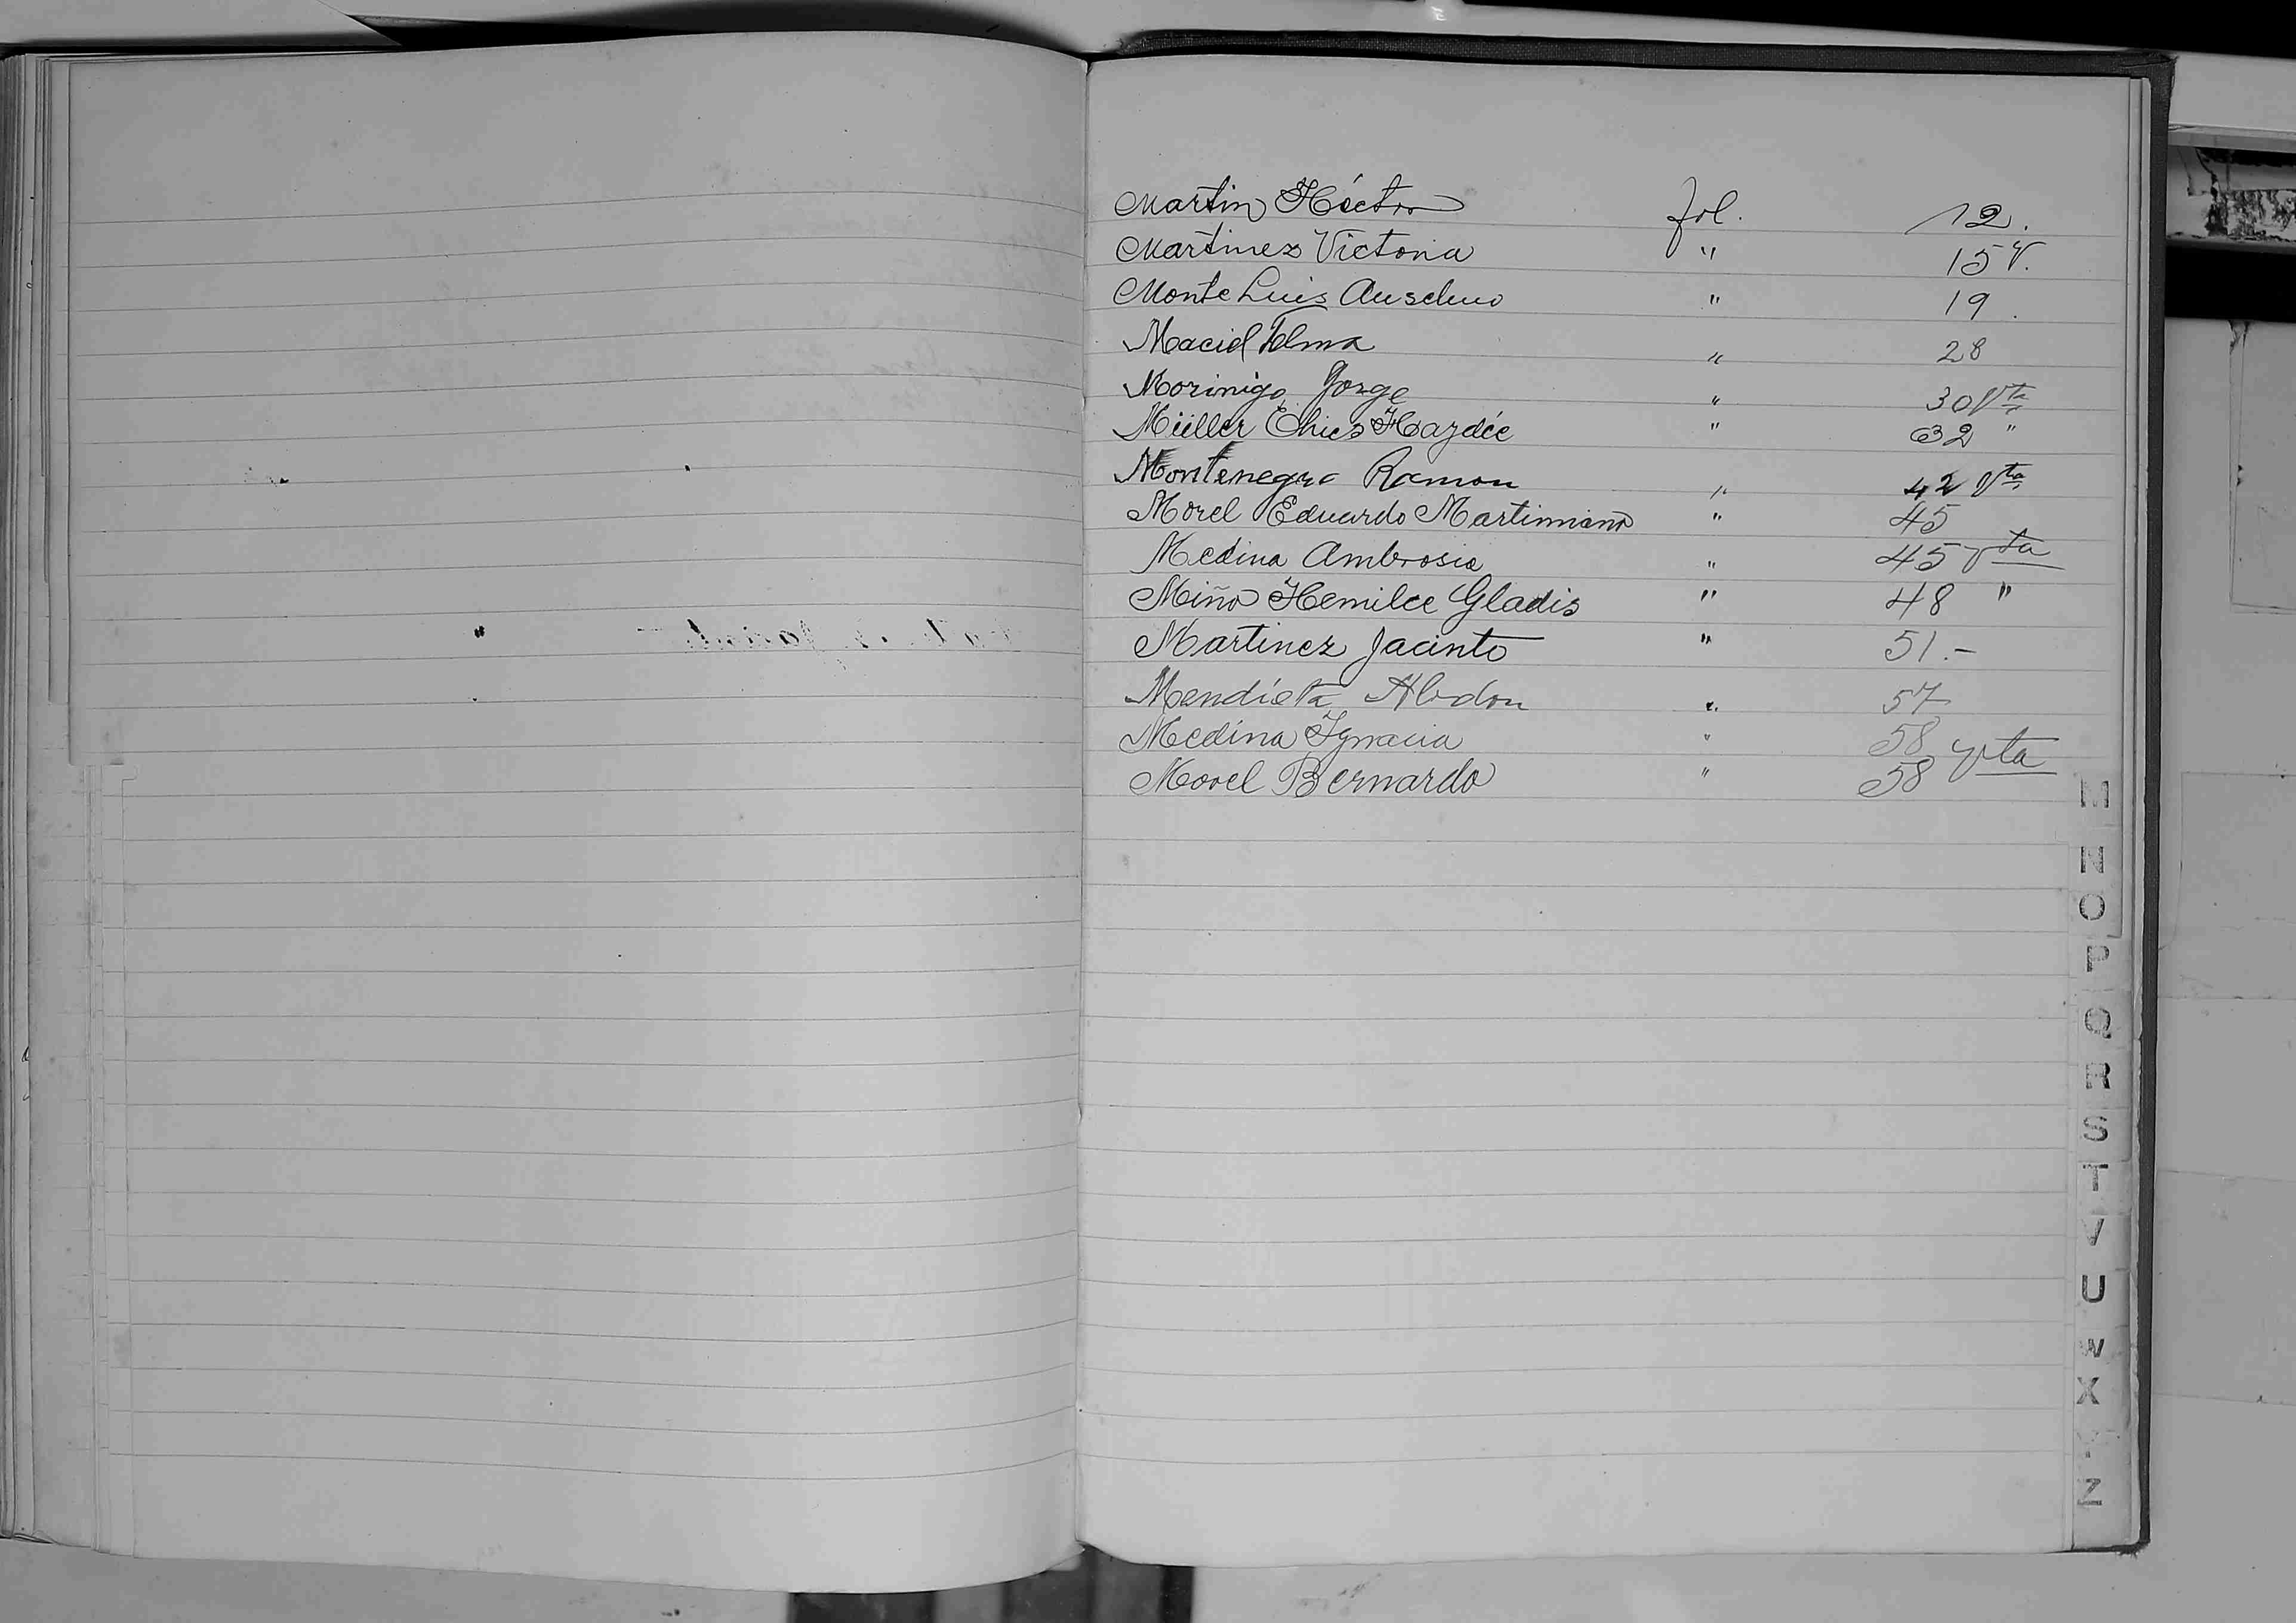 Martin Héctor fol. 12.
Martinez Victoria " 15 v.
Monte Luis Anselmo " 19.
Maciel Telma " 28
Morinigo Jorge " 30 Vta
Müller Haydée " 32 "
Montenegro Ramon " 42 Vta
Morel Eduardo Martimiano " 45
Medina Ambrosia " 45 vta
Miño Hemilce Gladis " 48 "
Martinez Jacinto " 51.-
Mendieta Abdon " 57
Medina Ignacia " 58
Morel Bernardo " 58 vta
M
N
O
P
Q
R
S
T
V
U
W
X
Z